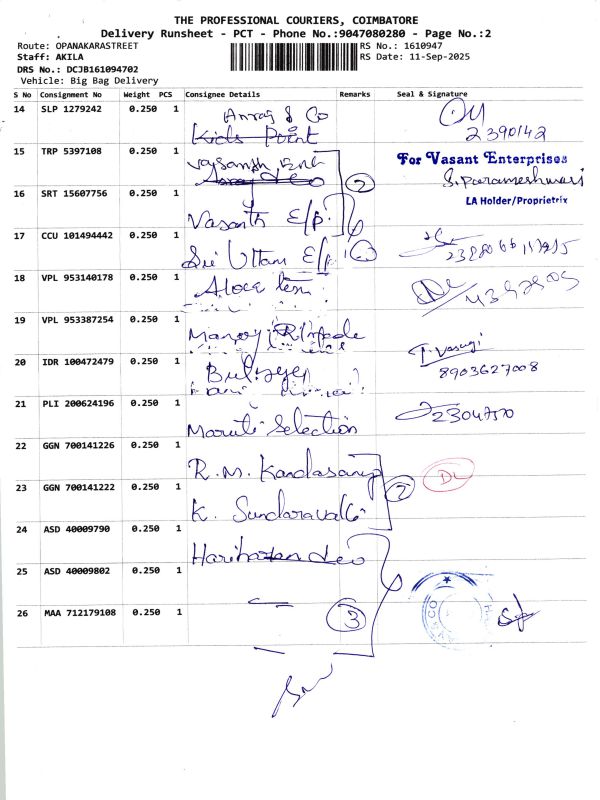 THE PROFESSIONAL COURIERS, COIMBATORE
Delivery Runsheet - PCT - Phone No.:9047080280 - Page No.:2
Route: OPANAKARASTREET
RS No.: 1610947
Staff: AKILA
RS Date: 11-Sep-2025
DRS No.: DCJB161094702
Vehicle: Big Bag Delivery
S No Consignment No Weight PCS Consignee Details Remarks Seal & Signature
14 SLP 1279242 0.250 1 & Co
Kids Point
2390142
15 TRP 5397108 0.250 1
For Vasant Enterprises
S. Parameshwari
LA Holder/Proprietrix
2
16 SRT 15607756 0.250 1 Vasanth E/p.
17 CCU 101494442 0.250 1 Sri Uttam E/p.
18 VPL 953140178 0.250 1
19 VPL 953387254 0.250 1 Manoj
T. Vasugi
20 IDR 100472479 0.250 1
8903627008
21 PLI 200624196 0.250 1 Maruti Selection
2304750
22 GGN 700141226 0.250 1 R.M. Kandasamy
2
23 GGN 700141222 0.250 1 K.
24 ASD 40009790 0.250 1 Hariharan
25 ASD 40009802 0.250 1
26 MAA 712179108 0.250 1 3